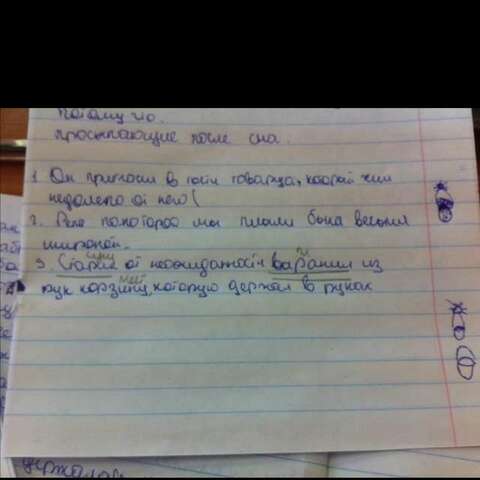 потому что.
просыпающие после сна.
1. Он пригласил в гости товарища, который жил
недалеко от него (
2. Река по которой мы плыли была весьма
широкой.
3. Старик от неожиданности выронил из
рук корзину, которую держал в руках